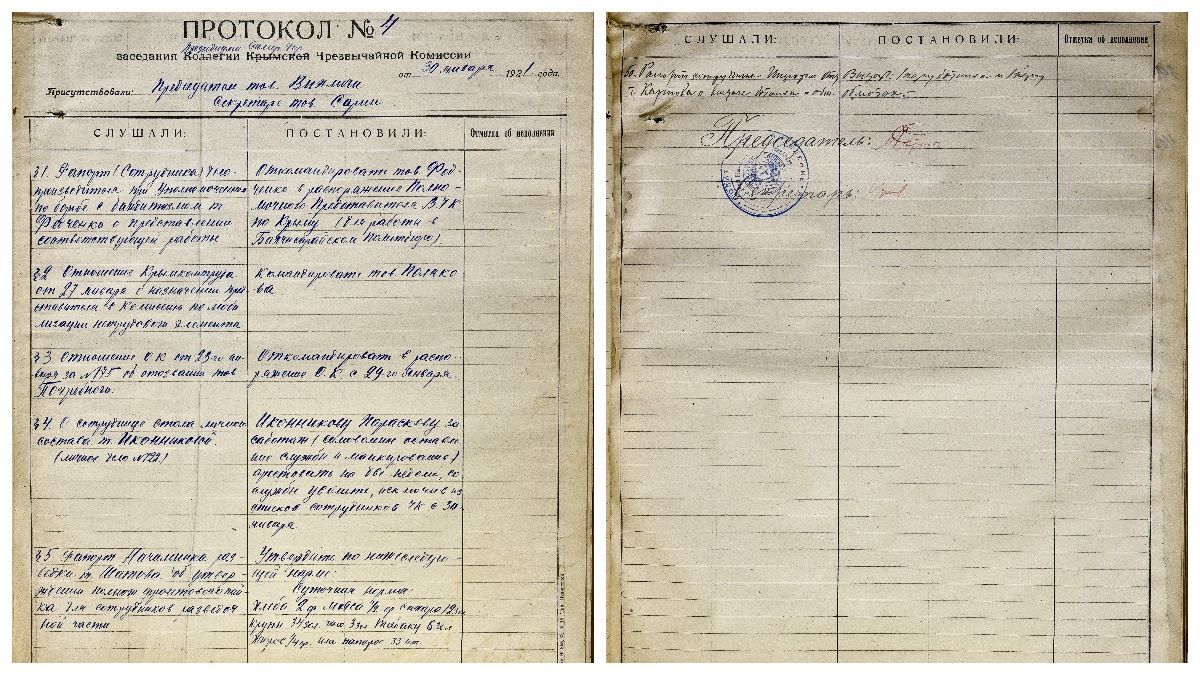 ПРОТОКОЛ № 4
заседания Коллегии Крымской Чрезвычайной Комиссии
от 30 января 1921 года.
Присутствовали: Председатель тов.
Секретарь тов.
СЛУШАЛИ: ПОСТАНОВИЛИ: Отметка об исполнении
31. Рапорт (Сотрудника) дело-
производителя при Уполномоченном
по борьбе с бандитизмом т.
Федченко о представлении
соответствующей работы
Откомандировать тов. Фед-
ченко в распоряжение Полно-
мочного Представителя ВЧК
по Крыму (для работы в
Бахчисарайском Политбюро).
32. Отношение
от 27 января о назначении пред-
ставителя в Комиссию по моби-
лизации нетрудового элемента
Командировать тов. Поляко-
ва.
33. Отношение О.К. от 23-го ян-
варя за № 175 об отозвании тов.
Погребного.
Откомандировать в распо-
ряжение О.К. с 29-го Января.
34. О сотруднице стола личного
состава т. Иконниковой.
(личное дело № 122)
Иконникову Параскеву за
саботаж (самовольное оставле-
ние службы и манкирование)
арестовать на две недели, со
службы уволить, исключив из
списков сотрудников ЧК с 30
января.
35. Рапорт Начальника раз-
ведки т. Шатова об утвер-
ждении полного фронтового пай-
ка для сотрудников разведоч-
ной части
Утвердить по нижеследую-
щей норме:
Суточная норма:
Хлеба 2 ф. Мяса 1/2 ф. сахара 12 зл.
Крупы 34 зол. чаю Табаку 6 зол.
или папирос 33 шт.
СЛУШАЛИ: ПОСТАНОВИЛИ: Отметка об исполнении
Рапорт сотрудника
т. Карпова о
Председатель:
Секретарь: